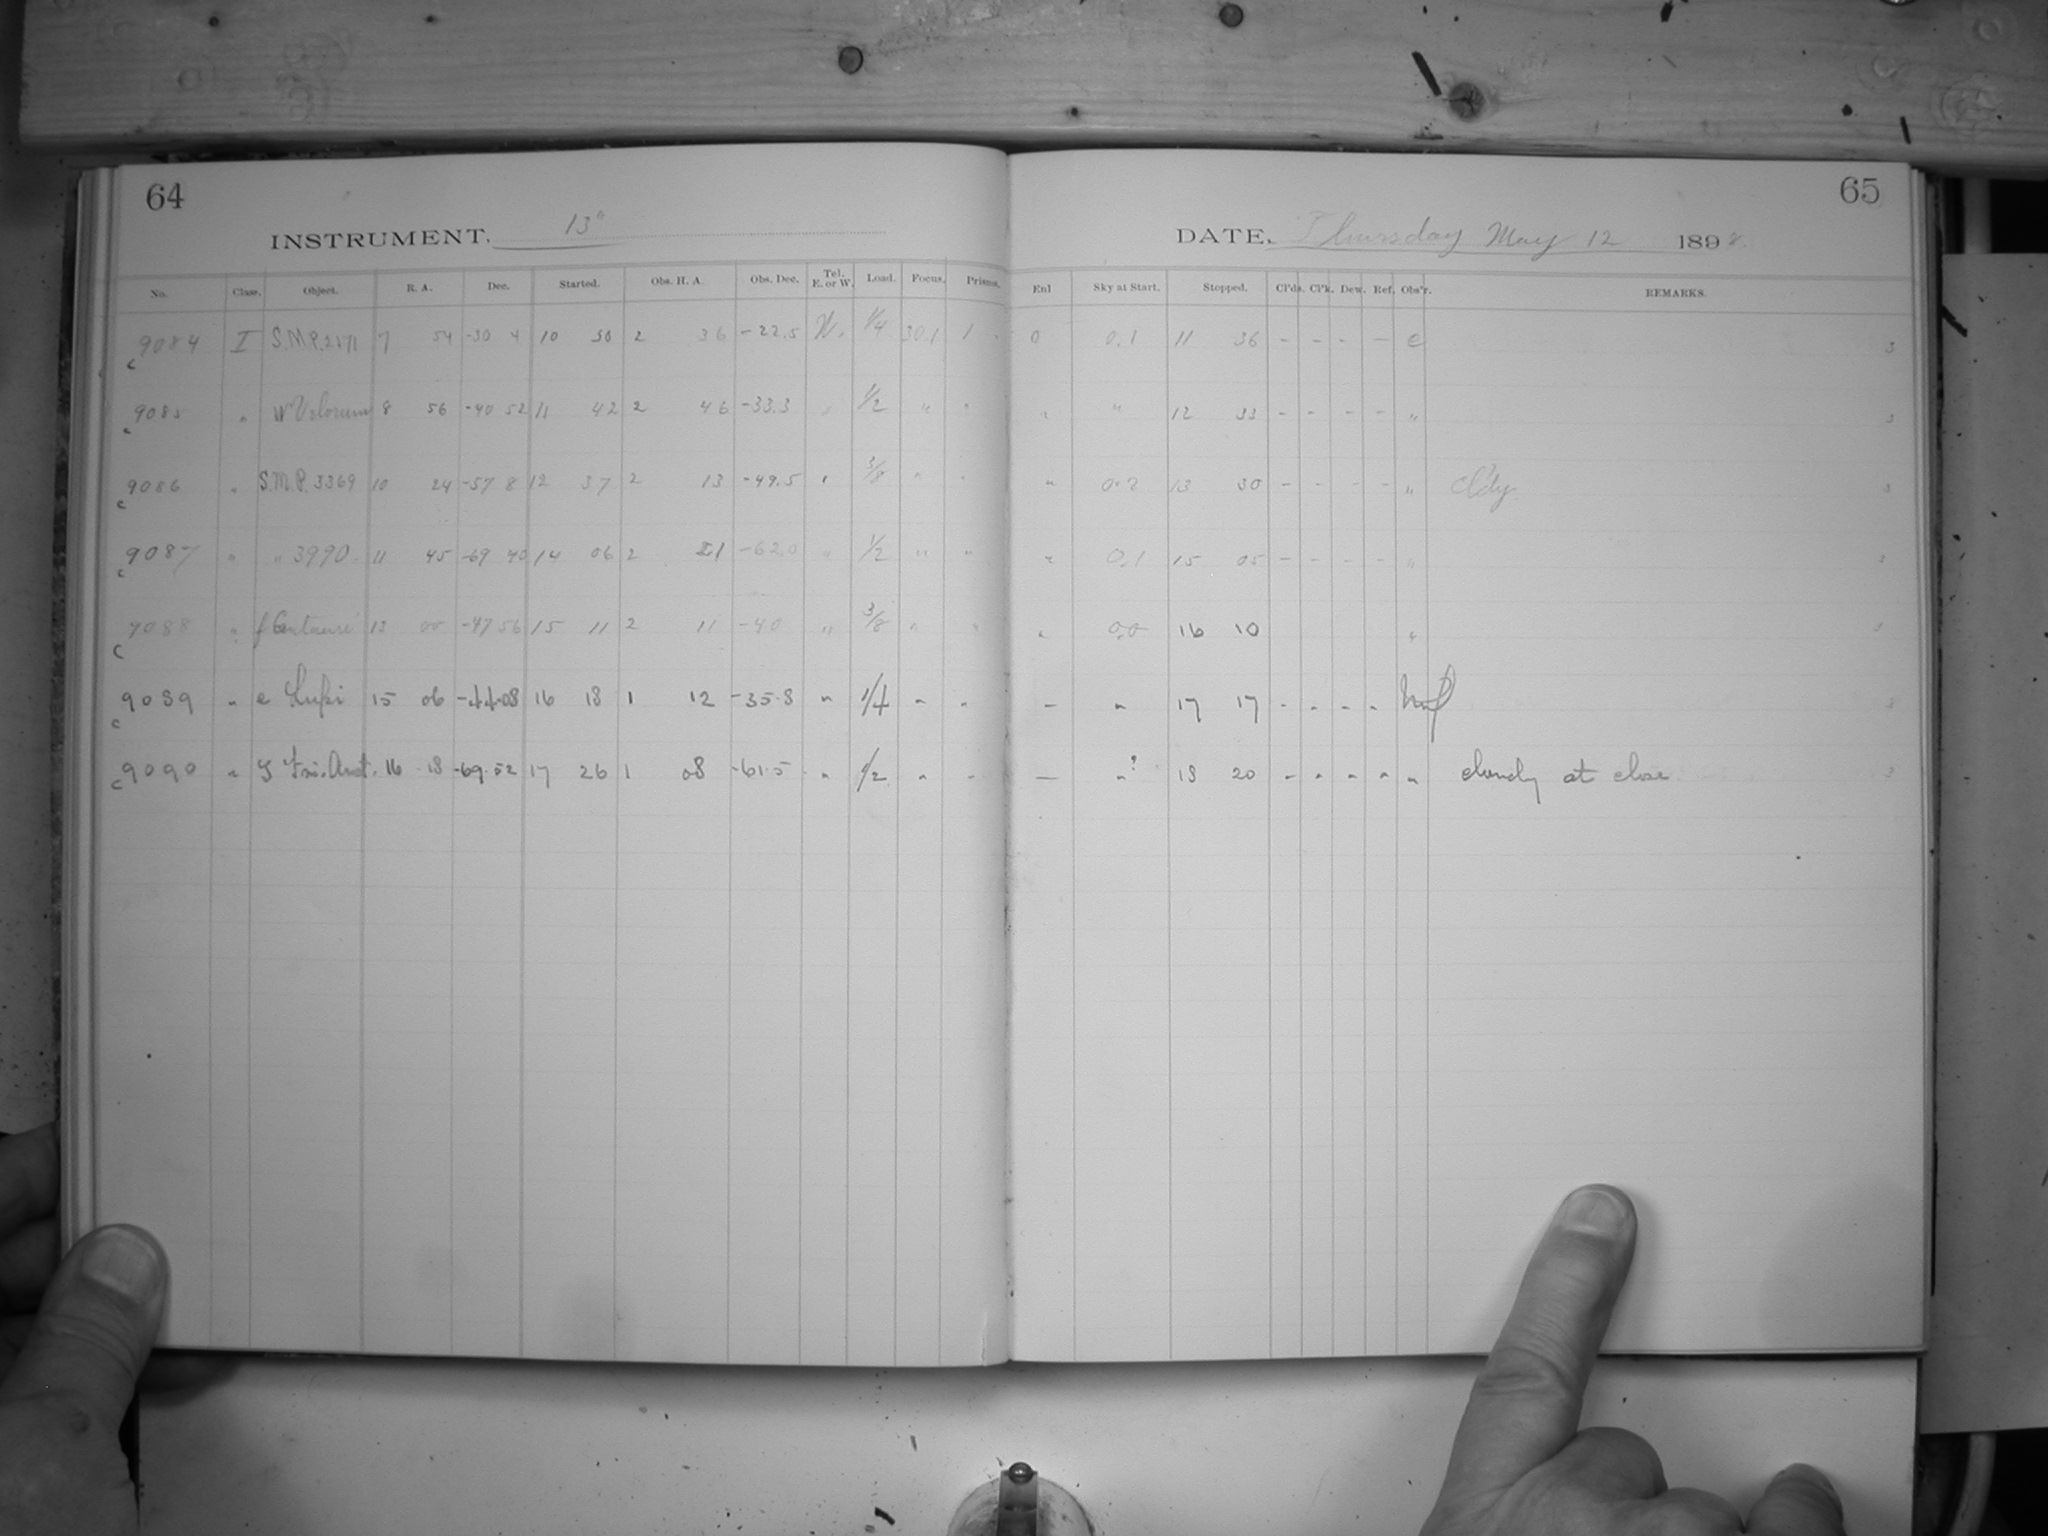 64
INSTRUMENT. 13"
No. Class. Object. R. A. Dec. Started. Obs. H. A. Obs. Dec. Tel. E. or W. Load. Focus. Prisms.
c 9084 I S.M.P.2171 7 54 -30 4 10 30 2 36 -22.5 W. 1/4 30.1 1
c 9085 " W Velorum 8 56 -40 52 11 42 2 46 -33.3 " 1/2 " "
c 9086 " S.M.P. 3369 10 24 -57 8 12 37 2 13 -49.5 " 3/8 " "
c 9087 " " 3990 11 45 -69 40 14 06 2 21 -62.0 " 1/2 " "
c 9088 " f Centauri 13 00 -47 56 15 11 2 11 -40 " 3/8 " "
c 9089 " e Lupi 15 06 -44.08 16 18 1 12 -35.8 " 1/4 " "
c 9090 " ζ Tri. Aust. 16 18 -69.52 17 26 1 08 -61.5 " 1/2 " "
65
DATE. Thursday May 12 1898.
Enl Sky at Start. Stopped. Cl'ds. Cl'k. Dew. Ref. Obs'r. REMARKS.
0 0.1 11 36 - - - - e 3
" " 12 33 - - - - " 3
" 0.2 13 30 - - - - " Cldy 3
" 0.1 15 05 - - - - " 3
" 0.0 16 10 " 3
- " 17 17 - - - -
- "? 18 20 - " " " " cloudy at close 3